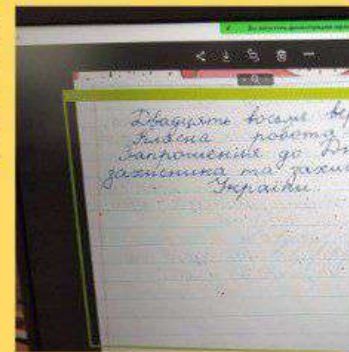 Двадцять восьме вер
Класна робота
Запрошення до Дн
захисника та захис
України.